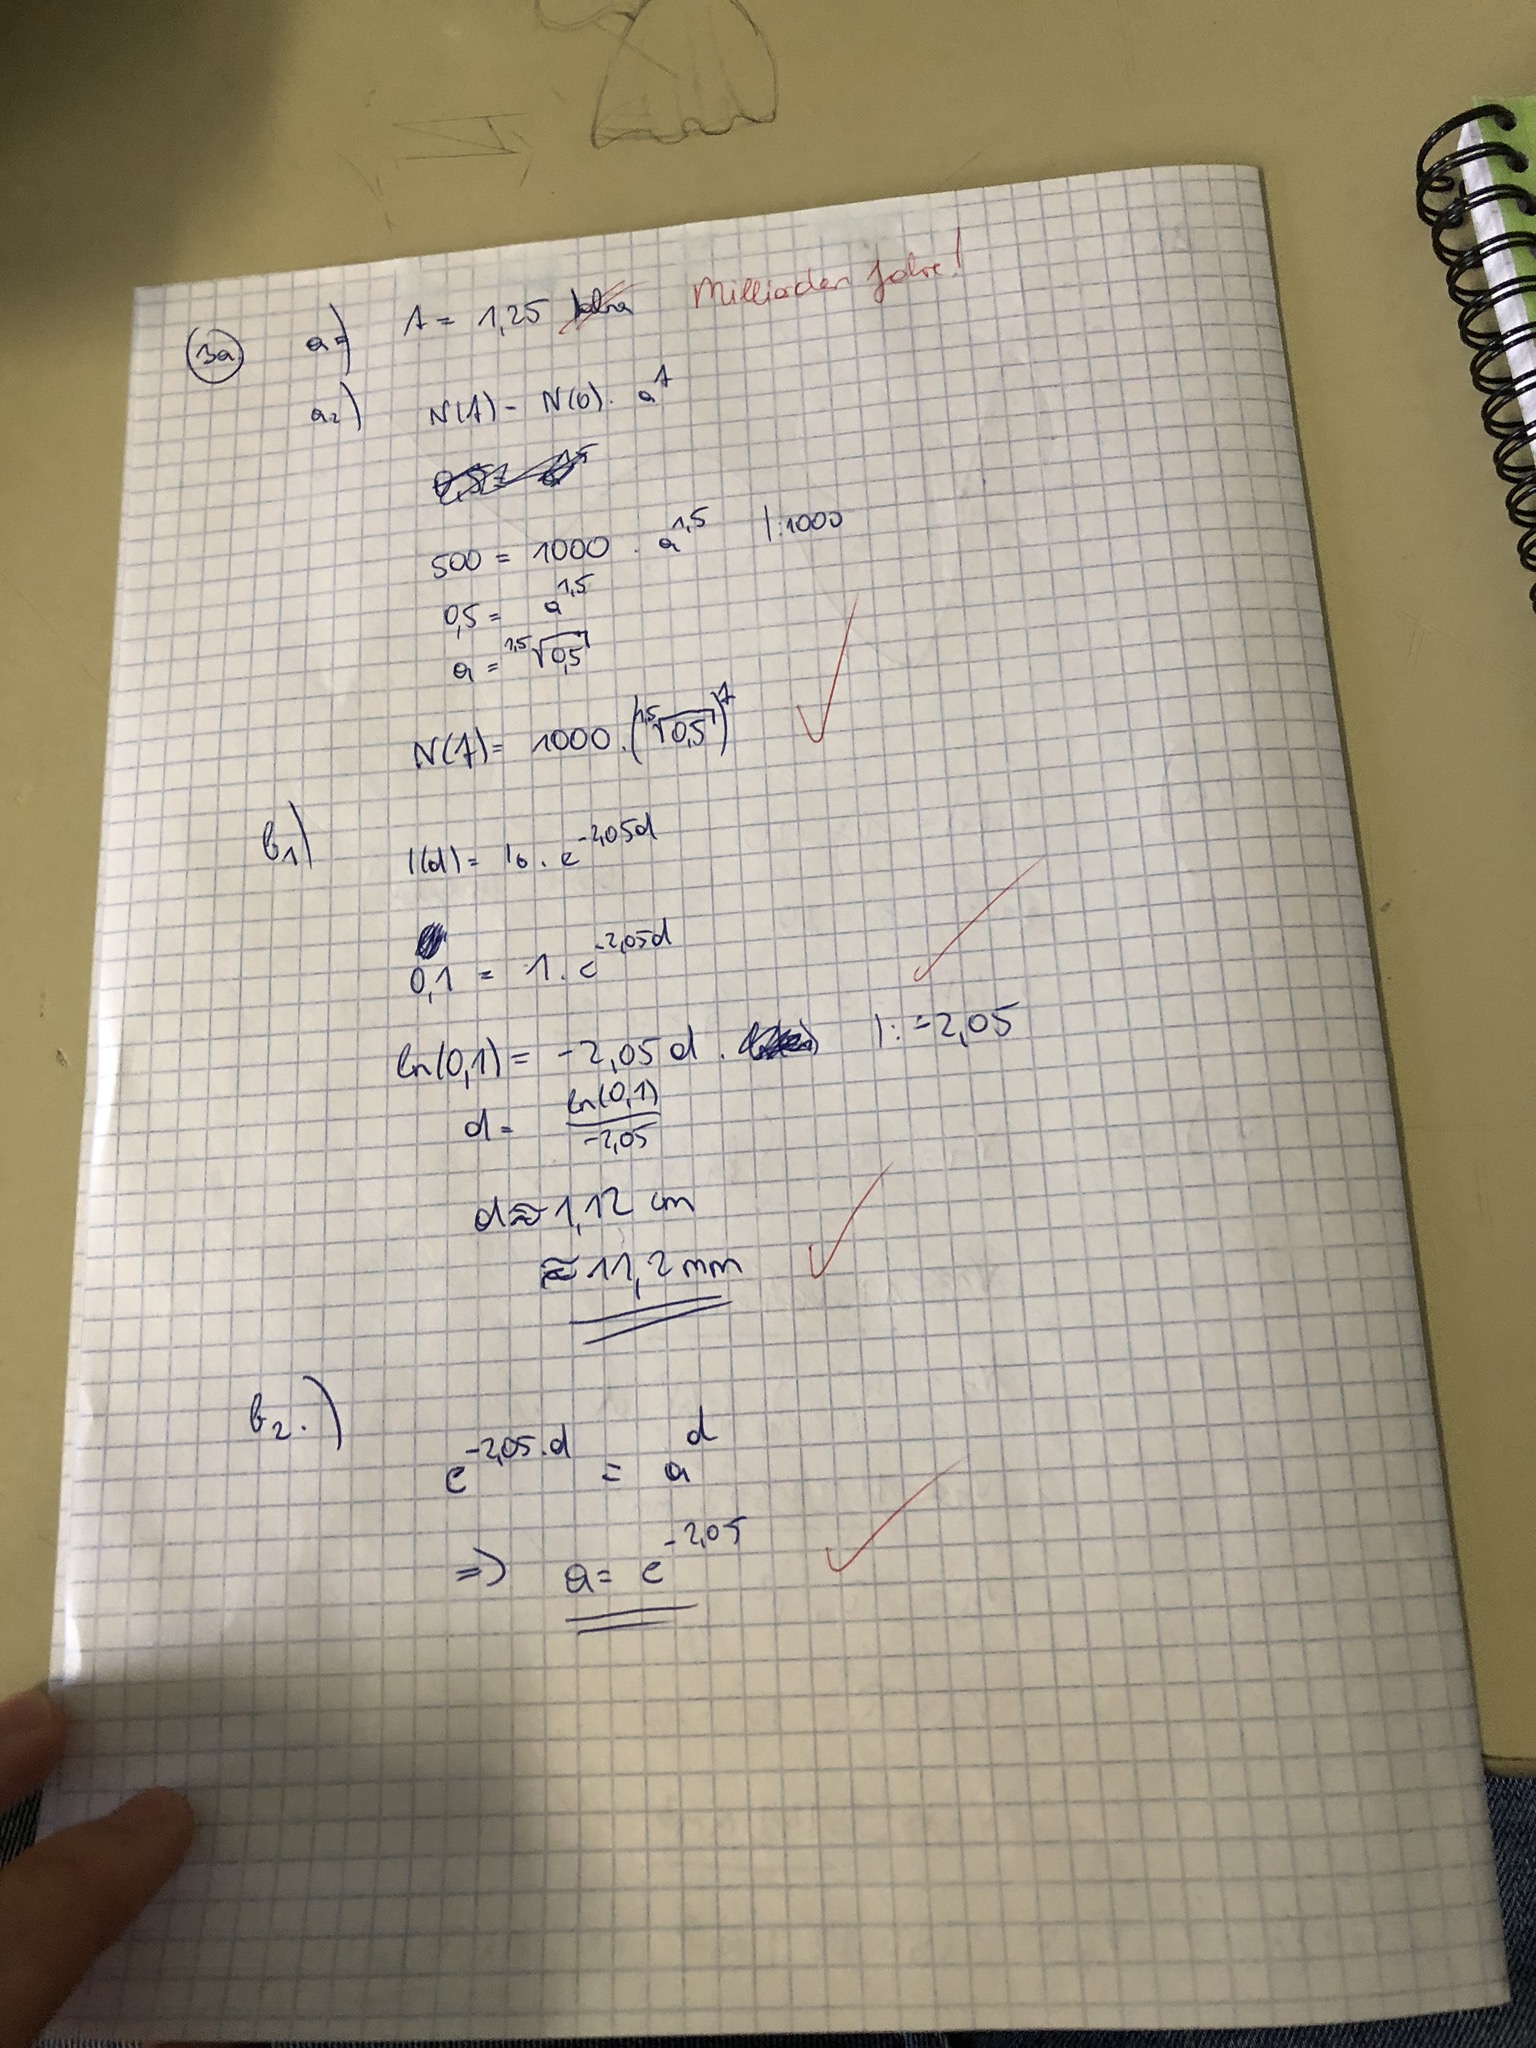 3a a1) t = 1,25 Jahre Milliarden Jahre!
a2) N(t) = N(0) · a^t
500 = 1000 · a^1,5 |:1000
0,5 = a^1,5
a = ^1,5√0,5
N(t) = 1000 · (^1,5√0,5)^t
b1) I(d) = I0 · e^-2,05d
0,1 = 1 · e^-2,05d
ln(0,1) = -2,05d · |: -2,05
d = ln(0,1)/-2,05
d ≈ 1,12 cm
≈ 11,2 mm
b2.) e^-2,05·d = a^d
=> a = e^-2,05